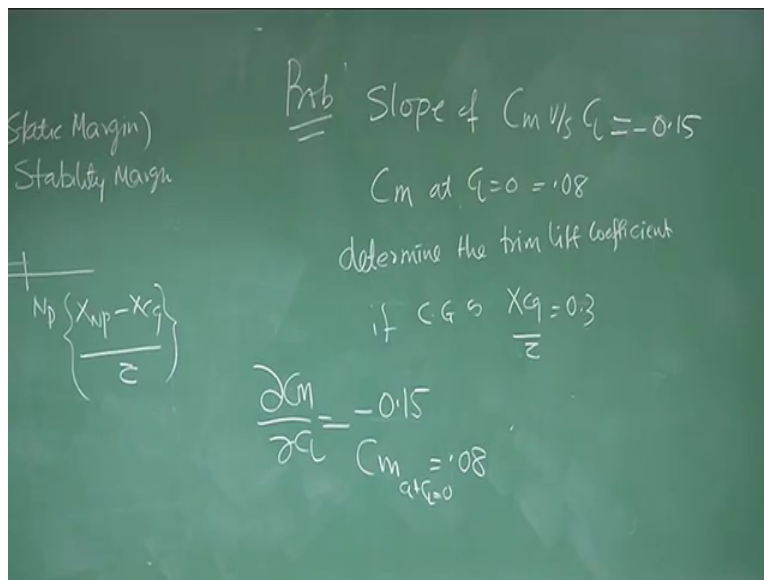 (Static Margin)
Stability Margin
NP { XNP - XCG / c̄ }
Prob Slope of Cm v/s CL = -0.15
Cm at CL=0 = .08
determine the trim lift coefficient
if C.G is XCG / c̄ = 0.3
∂Cm / ∂CL = -0.15
Cm at CL=0 = .08